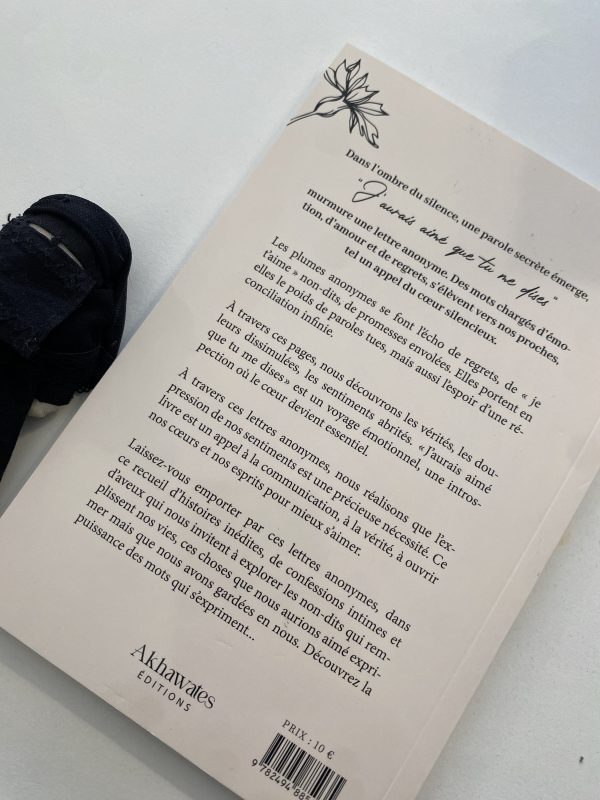 Dans l'ombre du silence, une parole secrète émerge,
"J'aurais aimé que tu me dises"
murmure une lettre anonyme. Des mots chargés d'émo-
tion, d'amour et de regrets, s'élèvent vers nos proches,
tel un appel du cœur silencieux.
Les plumes anonymes se font l'écho de regrets, de « je
t'aime » non-dits, de promesses envolées. Elles portent en
elles le poids de paroles tues, mais aussi l'espoir d'une ré-
conciliation infinie.
À travers ces pages, nous découvrons les vérités, les dou-
leurs dissimulées, les sentiments abrités. « J'aurais aimé
que tu me dises » est un voyage émotionnel, une intros-
pection où le cœur devient essentiel.
À travers ces lettres anonymes, nous réalisons que l'ex-
pression de nos sentiments est une précieuse nécessité. Ce
livre est un appel à la communication, à la vérité, à ouvrir
nos cœurs et nos esprits pour mieux s'aimer.
Laissez-vous emporter par ces lettres anonymes, dans
ce recueil d'histoires inédites, de confessions intimes et
d'aveux qui nous invitent à explorer les non-dits qui rem-
plissent nos vies, ces choses que nous aurions aimé expri-
mer mais que nous avons gardées en nous. Découvrez la
puissance des mots qui s'expriment...
Akhawates
ÉDITIONS
PRIX : 10 €
9 782494 885